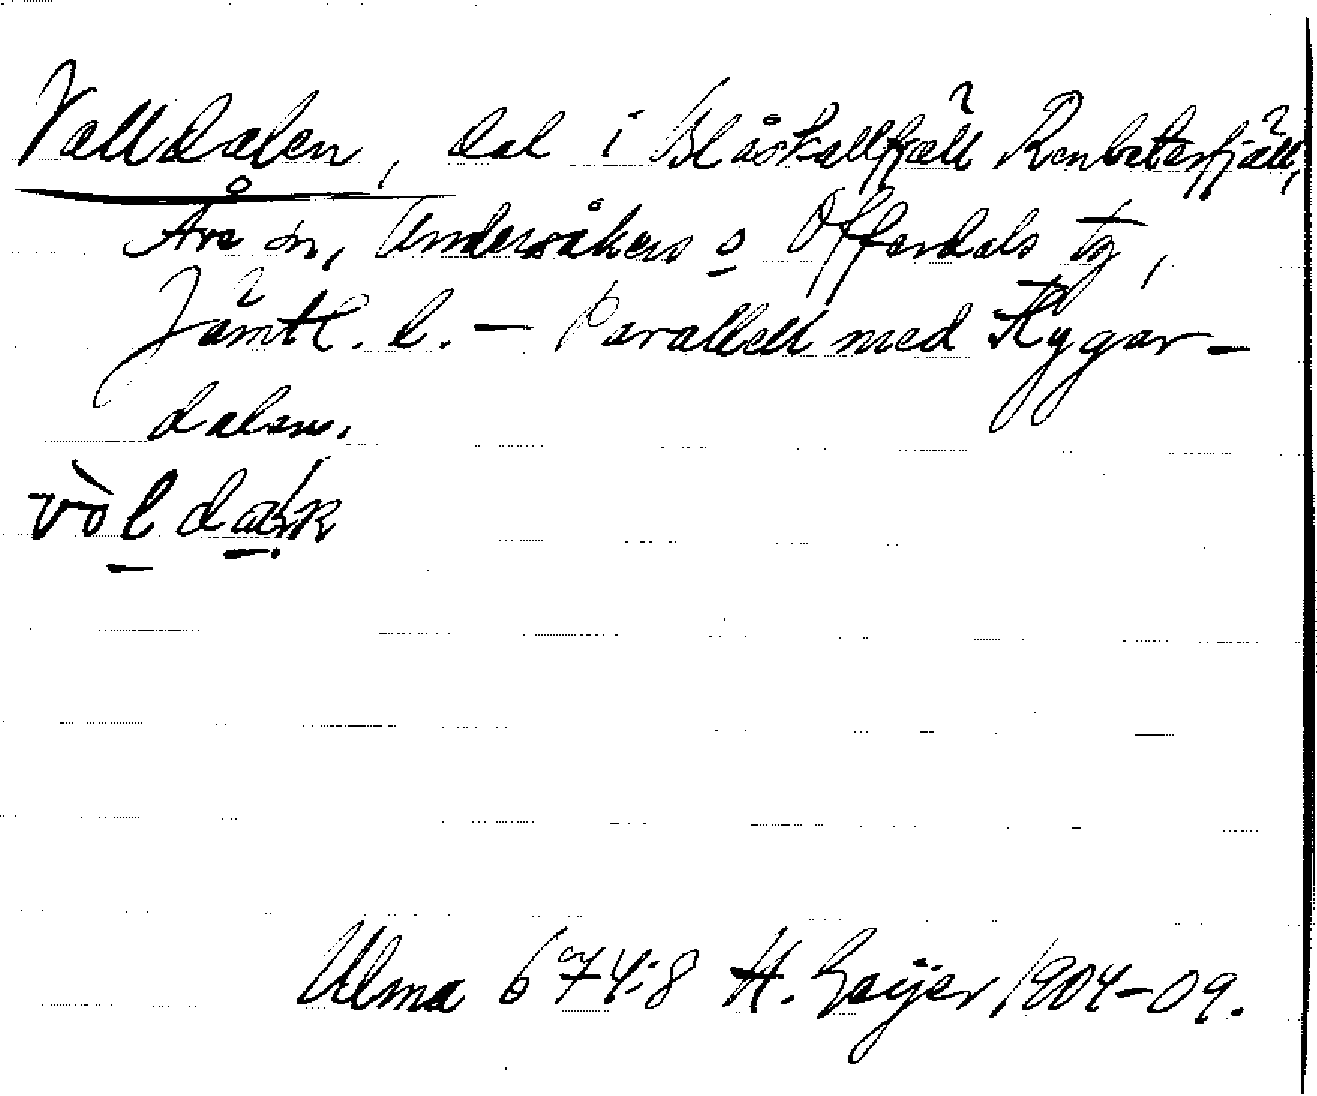 Valldalen, dal i Blåskallfjäll Renbetesfjäll,
Åre sn, Undersåkers o Offerdals tg,
Jämtl. l. – Parallell med Flygar-
dalen.
Ulma 674:8 H. Geijer 1904-09.